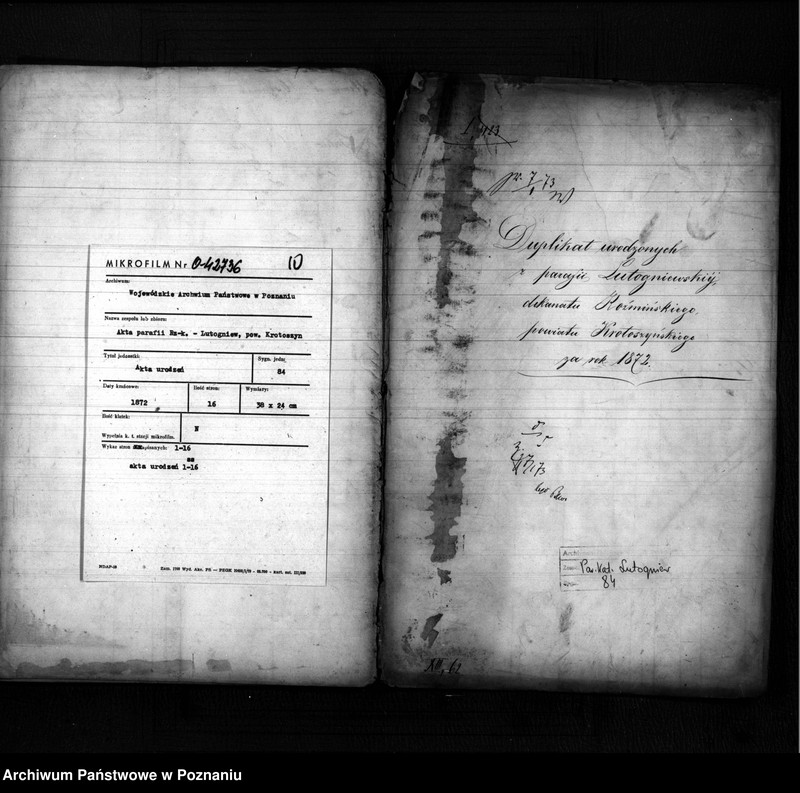 MIKROFILM Nr 0-42736
Archiwum:
Wojewódzkie Archwium Państwowe w Poznaniu
Nazwa zespołu lub zbioru:
Akta parafii Rz-k. - Lutogniew, pow. Krotoszyn
Tytuł jednostki:
Akta urodzeń
Sygn. jedn.
84
Daty krańcowe:
1872
Ilość stron:
16
Wymiary:
38 x 24 cm
Ilość klatek:
N
Wypełnia k. t. stacji mikrofilm.
Wykaz stron 1-16
akta urodzeń 1-16
Duplikat urodzonych
z parafii Lutogniewskiéj,
dekanatu Koźmińskiego,
powiatu Krotoszyńskiego
za rok 1872.
Par. Kat. Lutogniew
84
Archiwum Państwowe w Poznaniu